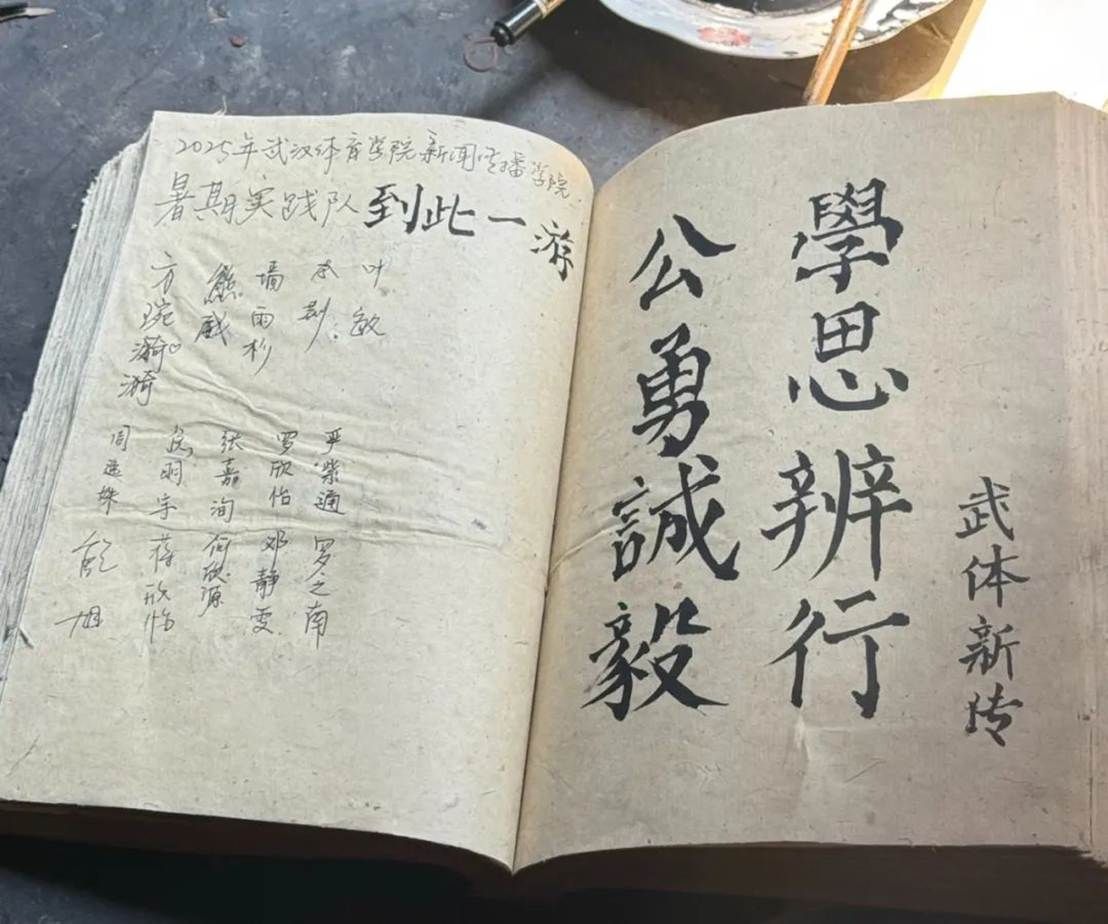 2025年武汉体育学院新闻传播学院
暑期实践队到此一游
叶敏
墙雨杉
熊威
方琬漪漪
严紫通
罗欣怡
张嘉洵
周逸姝
罗之南
邓静雯
何欣源
蒋欣怡
武体新传
學思辨行
公勇誠毅